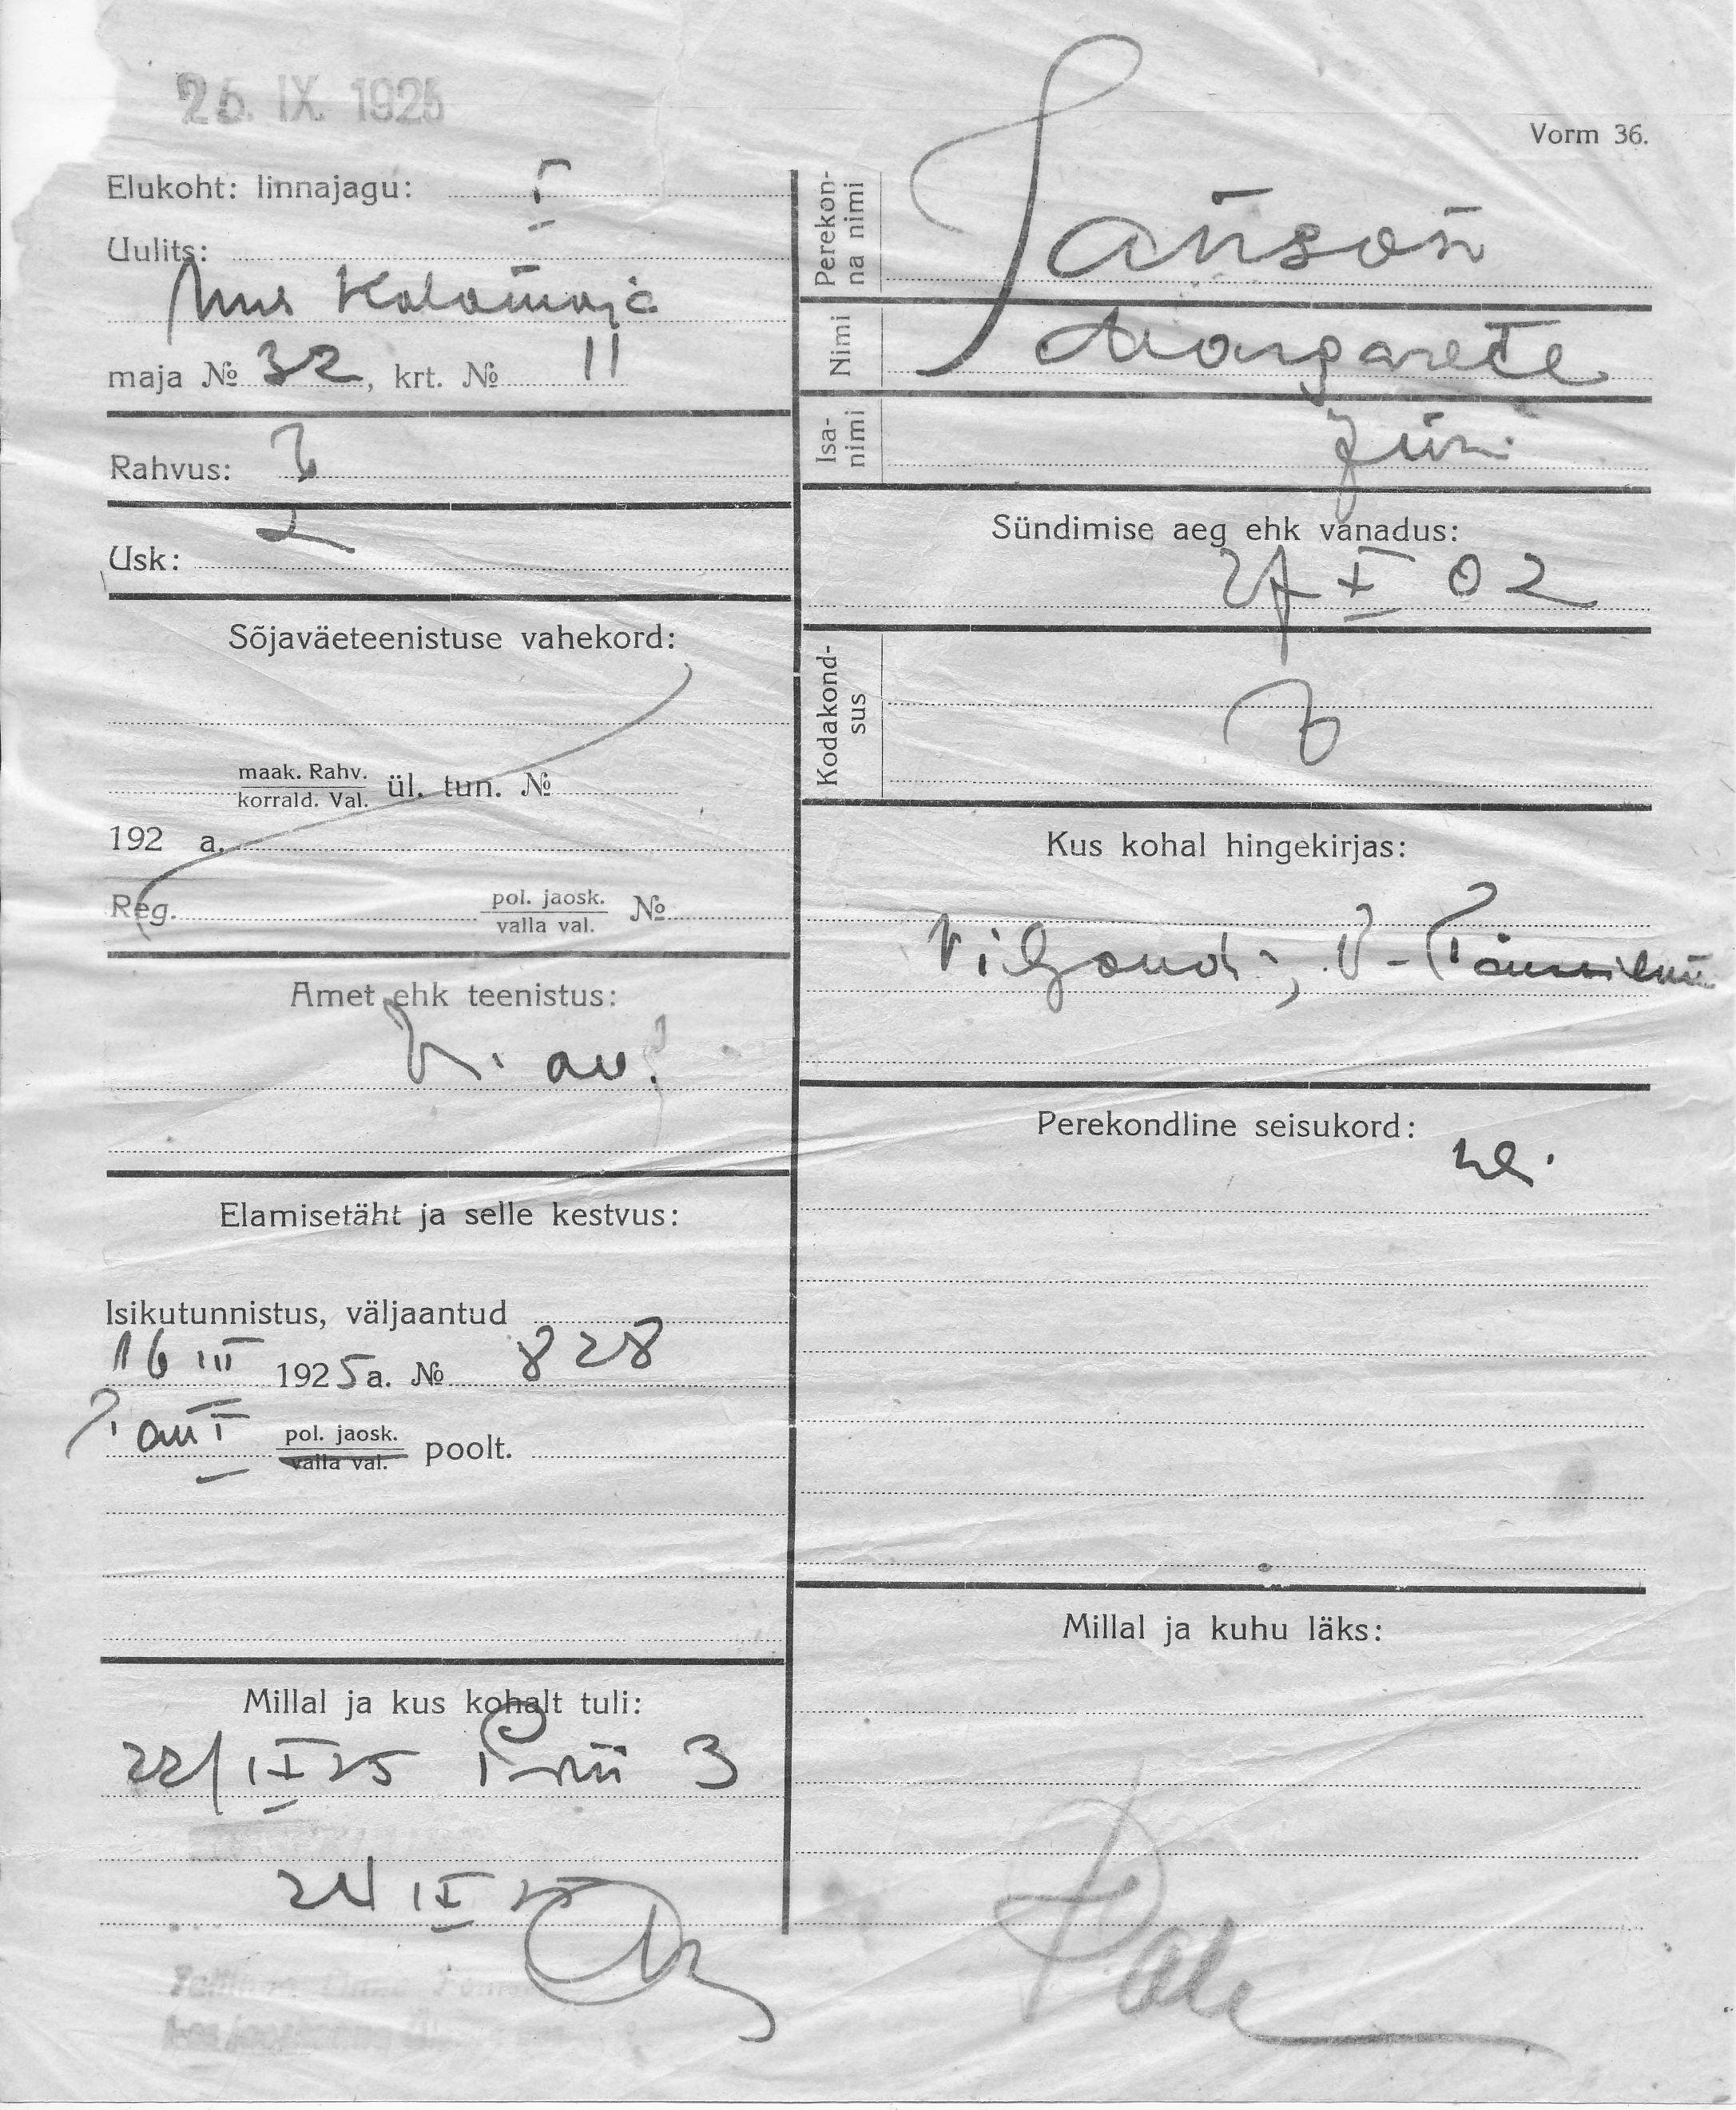 25. IX. 1925
Vorm 36.
Elukoht: linnajagu: I
Uulits:
Uus Kalamaja
maja № 32, krt. № 11
Rahvus:
Usk:
Sõjaväeteenistuse vahekord:
maak. Rahv.
korrald. Val. ül. tun. №
192 a.
Reg. pol. jaosk.
valla val. №
Amet ehk teenistus:
Elamisetäht ja selle kestvus:
Isikutunnistus, väljaantud
16 III 1925 a. № 828
pol. jaosk.
valla val. poolt.
Millal ja kus kohalt tuli:
22/IX 25 3
24 IX 25
Perekon-
na nimi
Janson
Nimi
Margarete
Isa-
nimi
Jüri
Sündimise aeg ehk vanadus:
27 X 02
Kodakond-
sus
Kus kohal hingekirjas:
Viljandi,
Perekondline seisukord:
Millal ja kuhu läks: